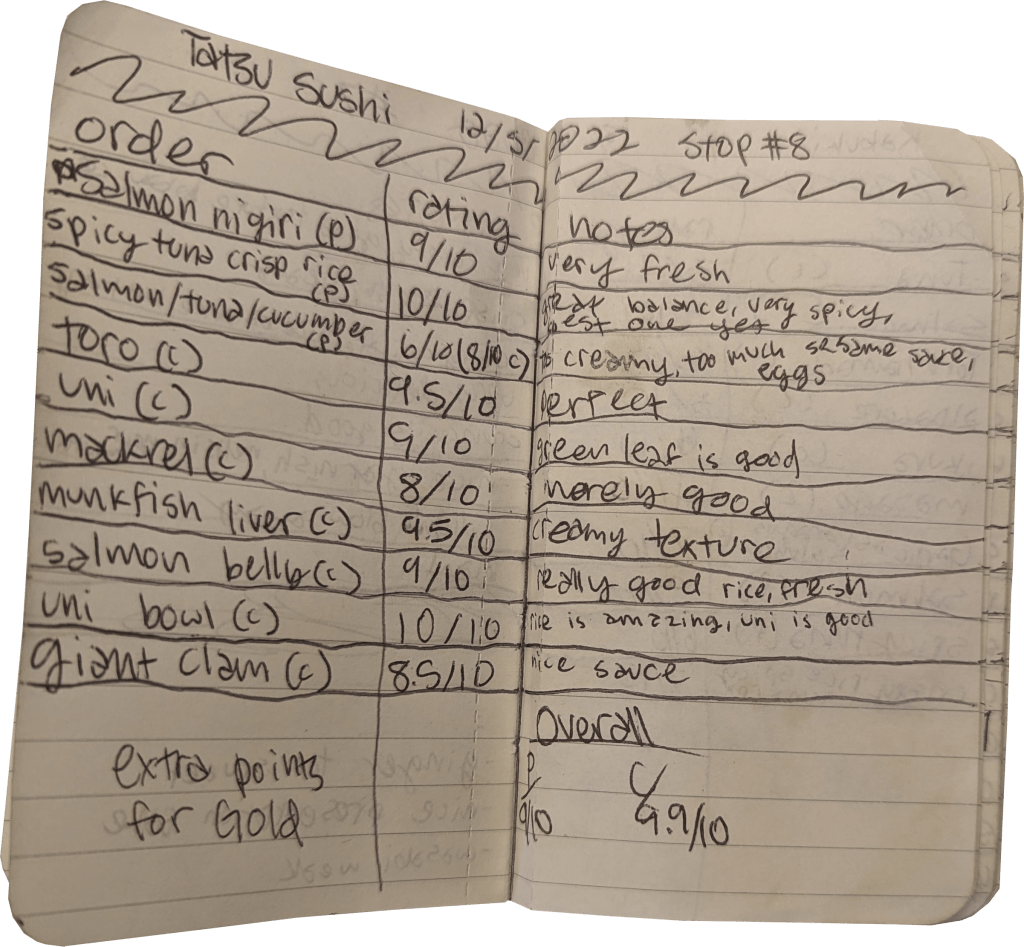 Tatsu Sushi 12/5/2022 Stop #8
order rating notes
salmon nigiri (p) 9/10 very fresh
spicy tuna crisp rice (p) 10/10 great balance, very spicy, best one yet
salmon/tuna/cucumber (p) 6/10 (8/10 c) creamy, too much sesame sauce, eggs
toro (c) 9.5/10 perfect
uni (c) 9/10 green leaf is good
mackrel (c) 8/10 merely good
munkfish liver (c) 9.5/10 creamy texture
salmon belly (c) 9/10 really good rice, fresh
uni bowl (c) 10/10 rice is amazing, uni is good
giant clam (c) 8.5/10 nice sauce
extra points
for Gold
Overall
P/ C/
9/10 9.9/10